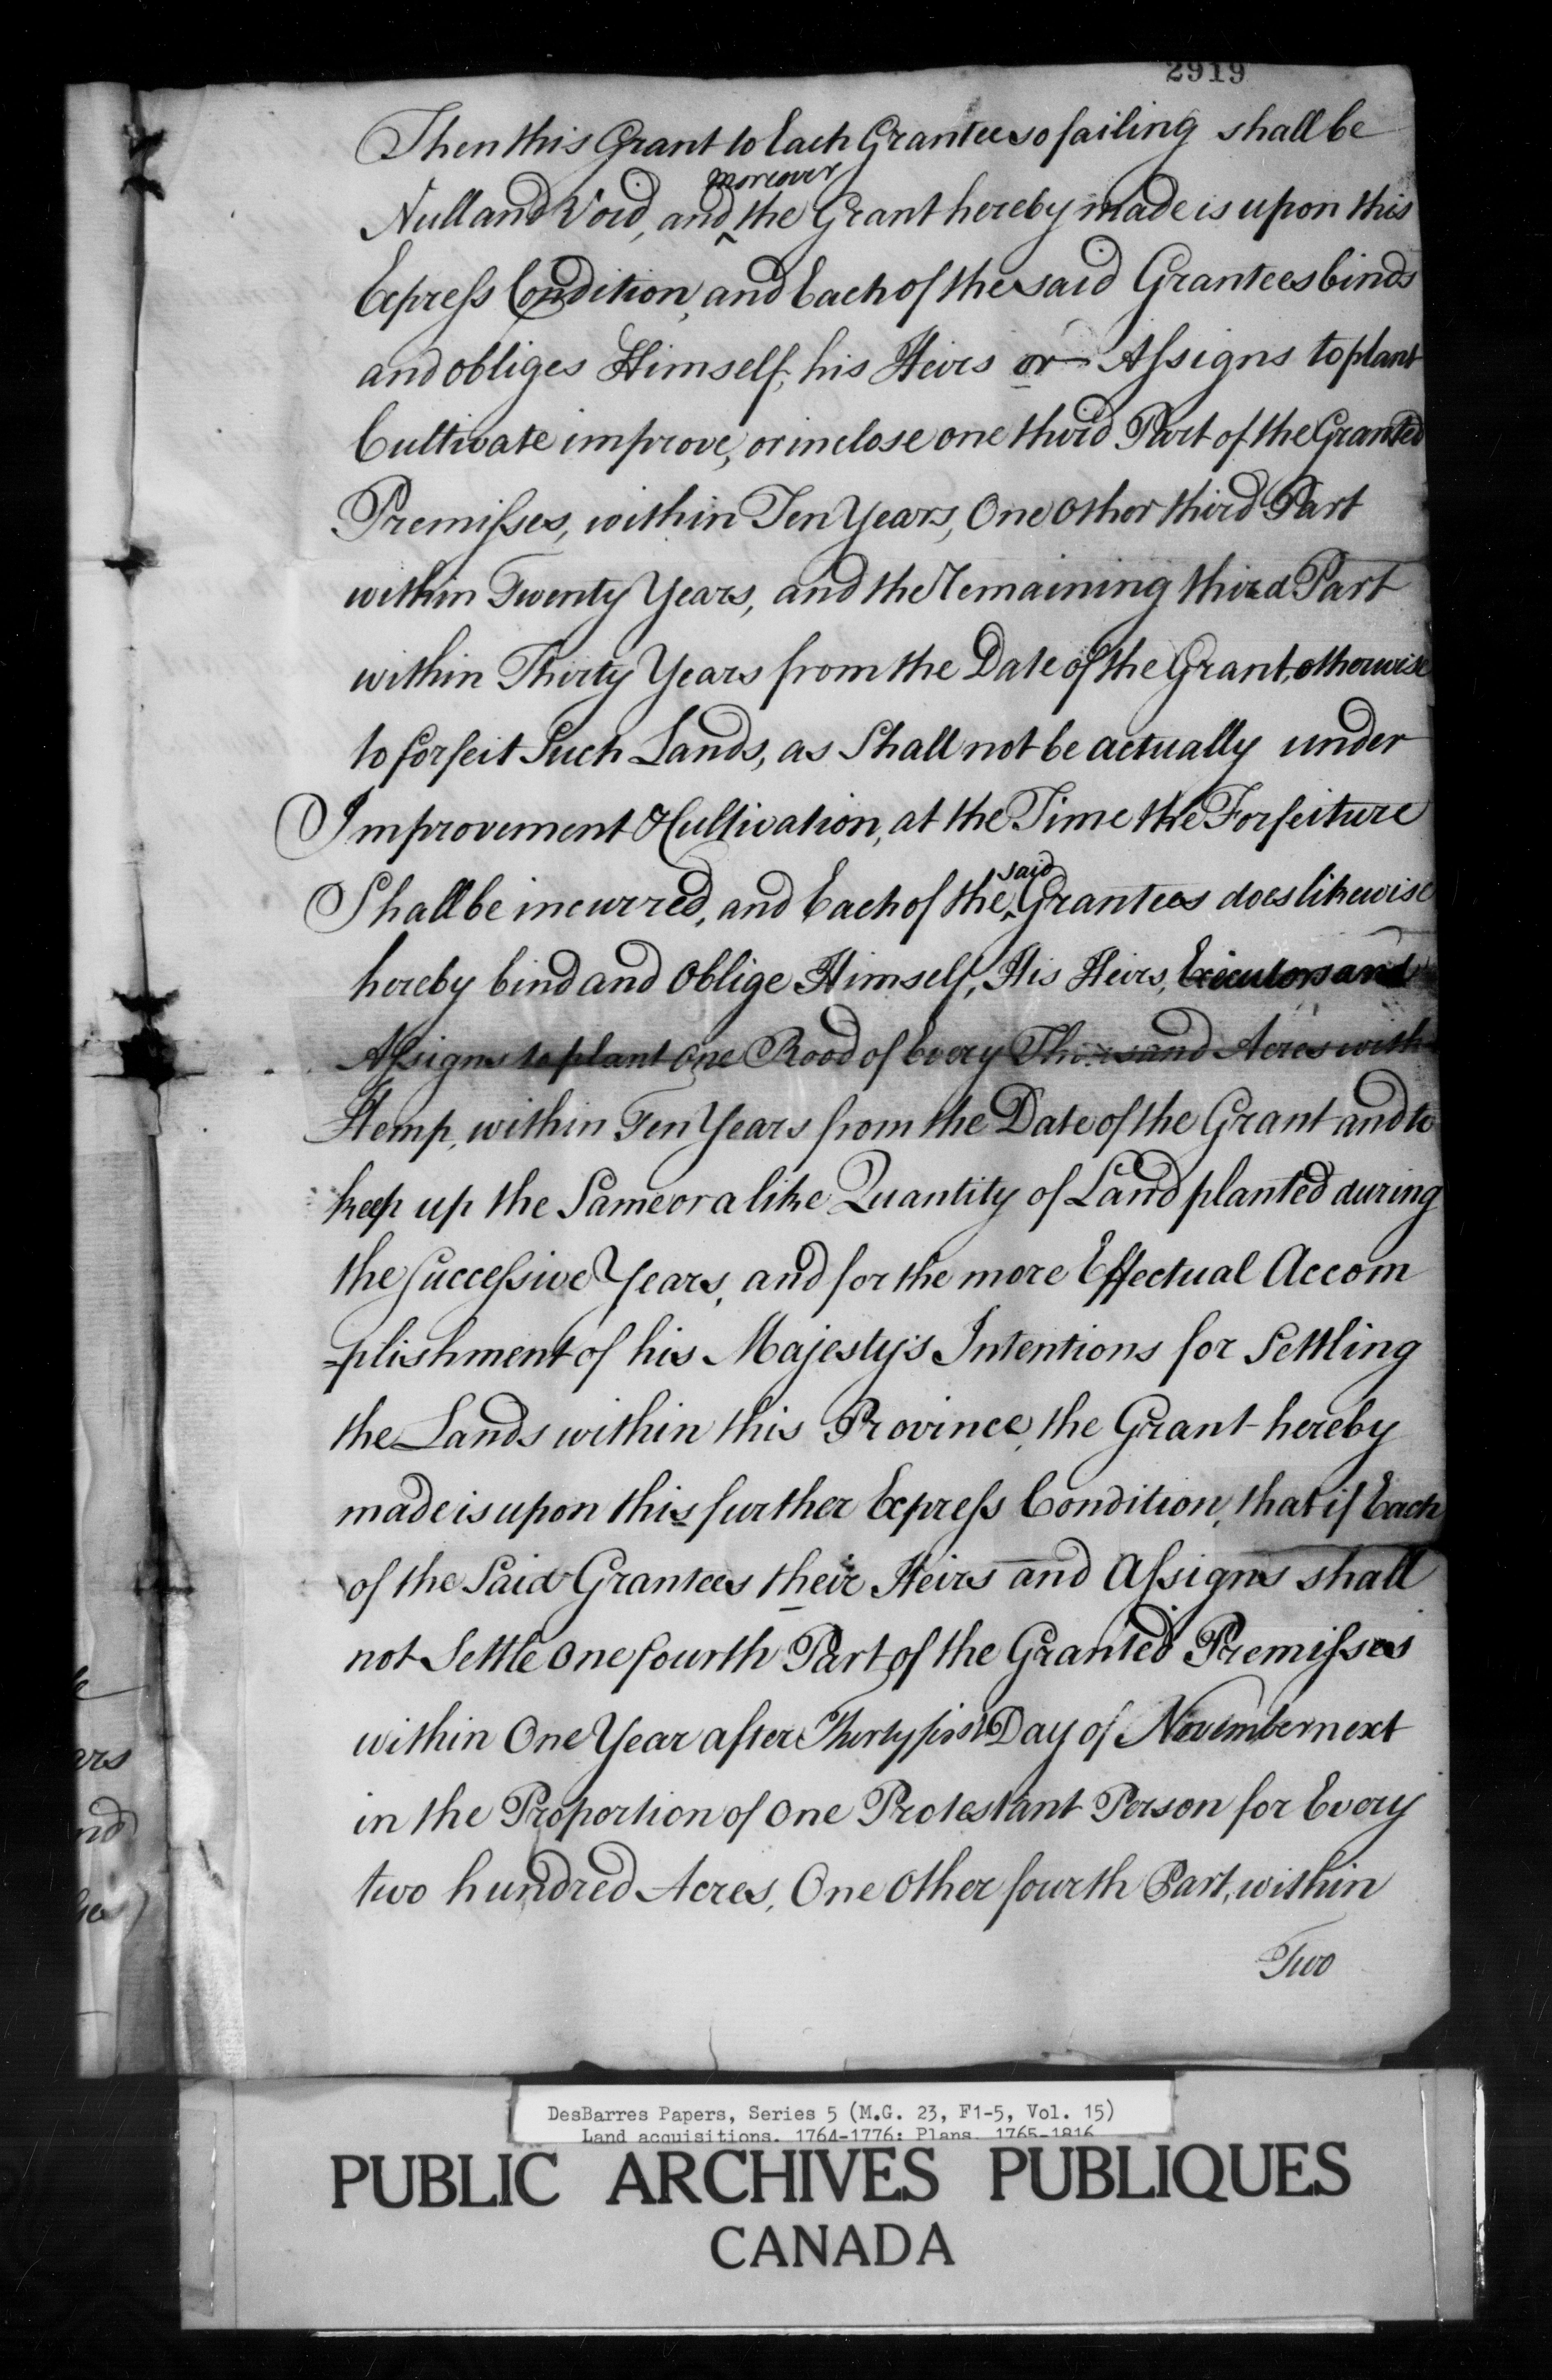 2919
Then this Grant to Each Grantee so failing shall be
moreover
Null and Void, and ‸ the Grant hereby made is upon this
Expreſs Condition, and Each of the said Grantees binds
and obliges Himself, his Heirs or Aſsigns to plant
Cultivate improve, or inclose one third Part of the Granted
Premiſses, within Ten Years, One other third Part
within Twenty Years, and the Remaining third Part
within Thirty Years from the Date of the Grant, otherwise
to forfeit Such Lands, as Shall not be actually under
Improvement & Cultivation, at the Time the Forfeiture
said
Shall be incurred, and Each of the ‸ Grantees does likewise
hereby bind and Oblige Himself, His Heirs, Executors and
Aſsigns to plant one Rood of Every Thousand Acres with
Hemp, within Ten Years from the Date of the Grant and to
keep up the Same or a like Quantity of Land planted during
the Succeſsive Years, and for the more Effectual Accom
-plishment of his Majesty's Intentions for Settling
the Lands within this Province, the Grant hereby
made is upon this further Expreſs Condition, that if Each
of the Said Grantees their Heirs and Aſsigns shall
not Settle One fourth Part of the Granted Premiſses
within One Year after Thirty first Day of November next
in the Proportion of One Protestant Person for Every
two hundred Acres, One Other fourth Part, within
Two
DesBarres Papers, Series 5 (M.G. 23, F1-5, Vol. 15)
Land acquisitions, 1764-1776; Plans, 1765-1816
PUBLIC ARCHIVES PUBLIQUES
CANADA